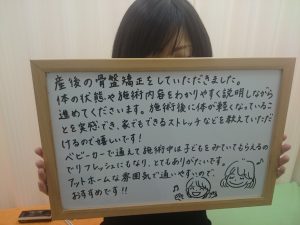 産後の骨盤矯正をしていただきました。
体の状態や施術内容をわかりやすく説明しながら
進めてくださいます。施術後に体が軽くなっているこ
とを実感でき、家でもできるストレッチなどを教えていただ
けるので嬉しいです！
ベビーカーで通えて施術中は子どもをみていてもらえるの
でリフレッシュにもなり、とてもありがたいです。
アットホームな雰囲気で通いやすいので、
おすすめです!!